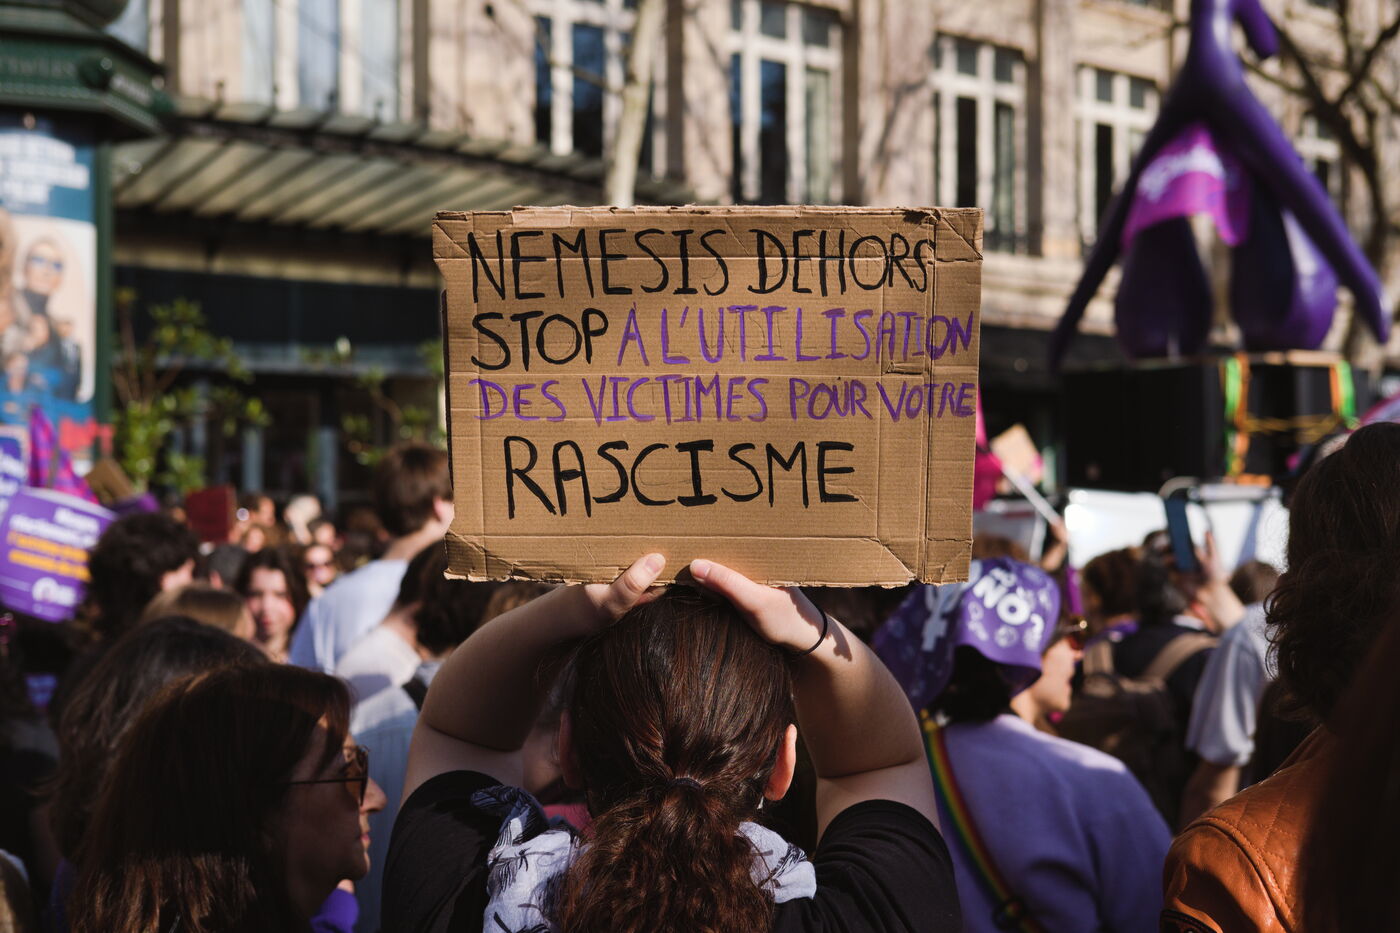 NEMESIS DEHORS
STOP À L'UTILISATION
DES VICTIMES POUR VOTRE
RASCISME
NO